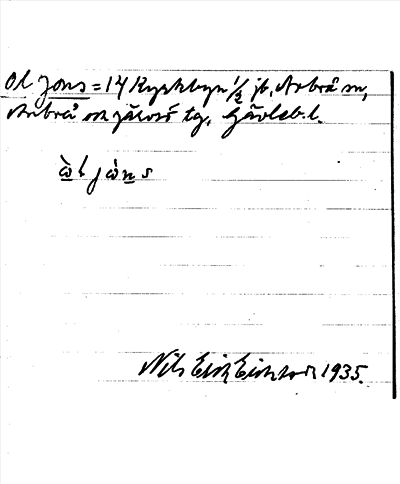 Ol Jons = 14 Kyrkbyn 1/2 jb, Arbrå sn,
Arbrå och Järvsö tg, Gävleb. l.
ὼl jὼns
Nils Erik Eriksson 1935.